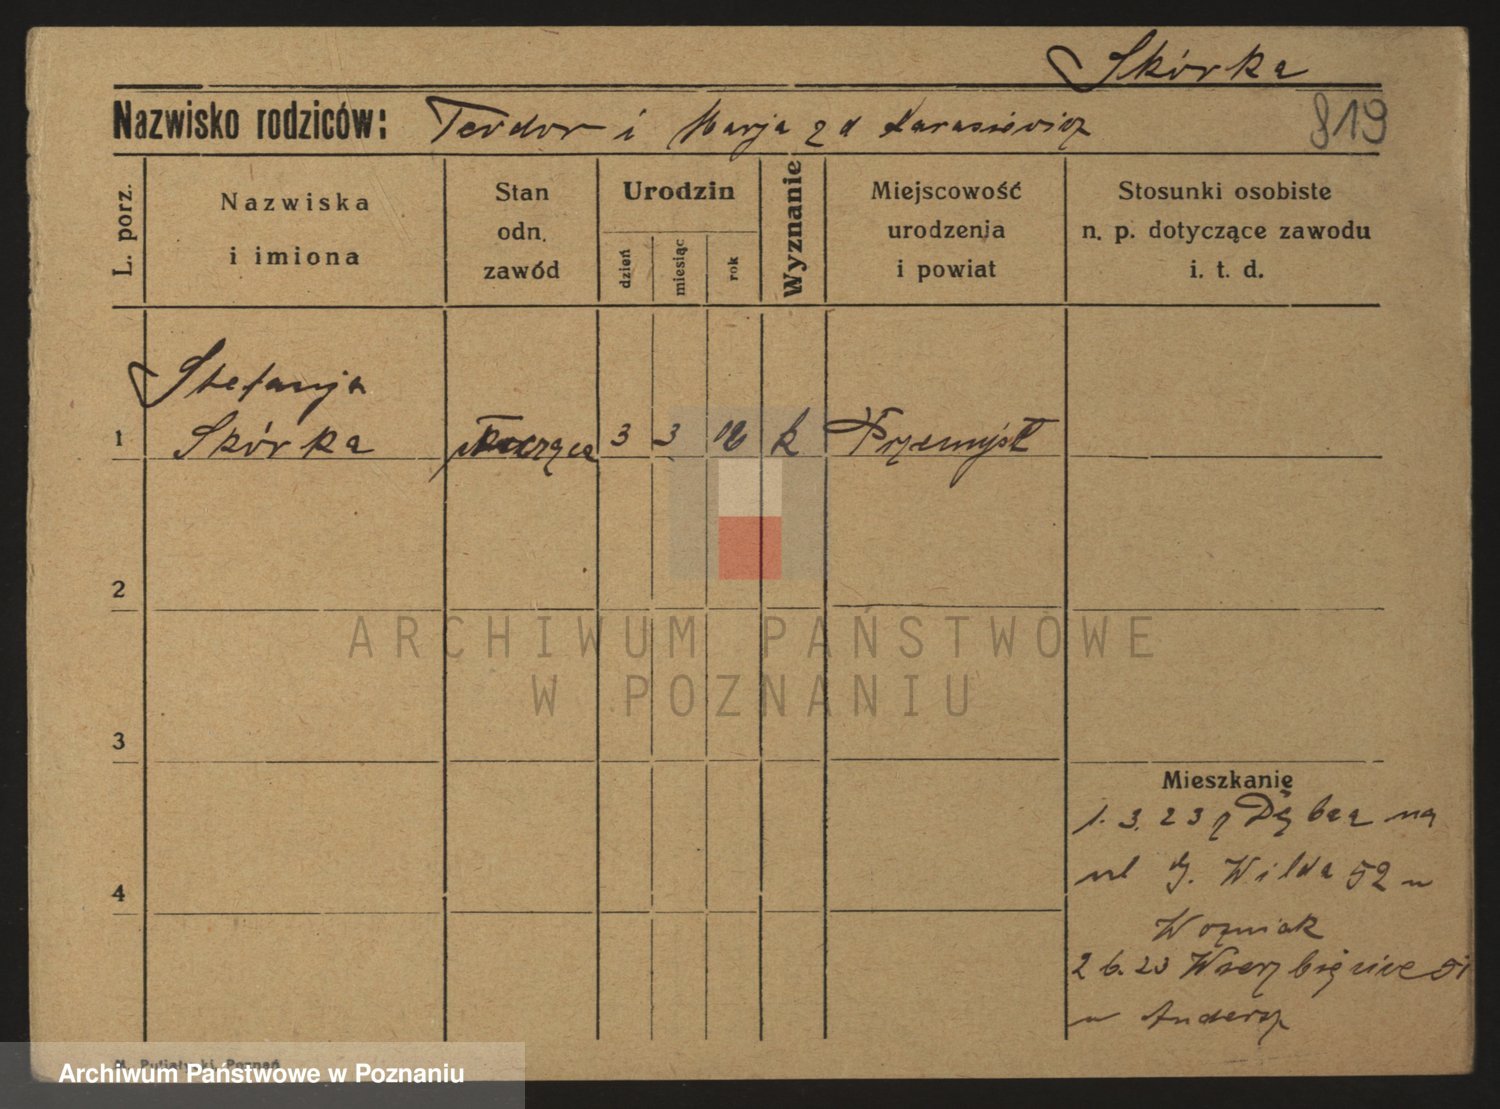 Skórka
Nazwisko rodziców: Teodor i Marja z d Karasiewicz
819
L. porz.
Nazwiska
i imiona
Stan
odn.
zawód
Urodzin
dzień
miesiąc
rok
Wyznanie
Miejscowość
urodzenia
i powiat
Stosunki osobiste
n. p. dotyczące zawodu
i. t. d.
Stefanja
1 Skórka 3 3 k Przemyśl
2
3
4
Mieszkanie
1. 3. 23 z Dębca na
ul G. Wilda 52 u
Woźniak
2 6. 23 Wierzbięcice 51
u Andersz
ARCHIWUM PAŃSTWOWE
W POZNANIU
Archiwum Państwowe w Poznaniu